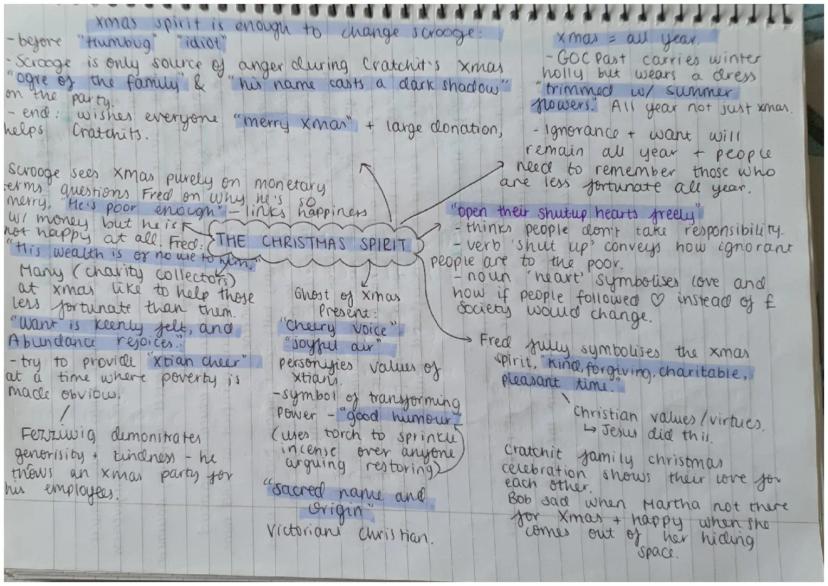 xmas spirit is enough to change scrooge:
- before "Humbug" "idiot"
- Scrooge is only source of anger during Cratchit's xmas
"ogre of the family" & "his name casts a dark shadow"
on the party.
- end: wishes everyone "merry xmas" + large donation,
helps Cratchits.
xmas = all year.
- GOCPast carries winter
holly but wears a dress
"trimmed w/ summer
flowers." All year not just xmas.
- Ignorance + want will
remain all year + people
need to remember those who
are less fortunate all year.
Scrooge sees xmas purely on monetary
terms, questions Fred on why he's so
merry, "He's poor enough" - links happiness
w/ money but he is
not happy at all. Fred:
"His wealth is of no use to him."
THE CHRISTMAS SPIRIT
"open their shutup hearts freely"
- thinks people don't take responsibility.
- verb 'shut up' conveys how ignorant
people are to the poor.
- noun 'heart' symbolises love and
how if people followed ♡ instead of £
society would change.
Many (charity collectors)
at xmas like to help those
less fortunate than them.
"Want is keenly felt, and
Abundance rejoices."
- try to provide "xtian cheer"
at a time where poverty is
made obviou.
Fezziwig demonstrates
generisity + kindness - he
thows an xmas party for
his employees.
Ghost of xmas
Present:
"Cheery voice"
"joyful air"
personifies values of
xtians.
- symbol of transforming
power - "good humour"
(uses torch to sprinkle
incense over anyone
arguing restoring)
"sacred name and
origin"
Victorians Christian.
Fred fully symbolises the xmas
spirit, "kind, forgiving, charitable,
pleasant time."
Christian values/virtues.
↳ Jesus did this.
Cratchit family christmas
celebration shows their love for
each other.
Bob sad when Martha not there
for xmas + happy when she
comes out of her hiding
space.